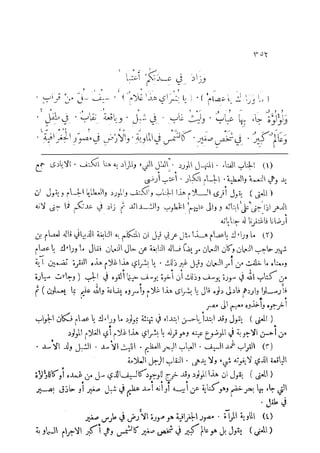 ٣٥٢
وزاد في عددكم أعتبا
(ما وراءك يا عصام) ٢. (يا بُشراي هذا غلام) ٢. سيف سُلّ من قراب.
ولؤلؤة جاء بها عُباب. وليث غاب. في شبل. وباقعة نقاب. في طفل ٣.
وعالم كبير. في شخص صغير. كالشمس في الماوية. والأرض في مصور الجغرافية ٤.
(١) الجناب الفناء. المنهل المورد. الظل الفيء والمراد به هنا الكنف. الايادي جمع
يد وهي النعمة والعطية. الجسام الكبار. أعتب أرضى
(المعنى) يقول أقرئ السلام هذا الجناب والكنف والمورد والعطايا الجسام ويقول ان
الدهر إذا جنى على أبنائه ووالى عليهم الخطوب والشدائد ثم زاد في عددكم فما جنى لانه
أرضانا فاغتفرنا له جناياته
(٢) ما وراءك يا عصام هذا مثل عربي في قيل ان المتكلم به النابغة الذبياني قاله لعصام بن
شهير حاجب النعمان وكان النعمان مريضاً فسأله النابغة عن حال النعمان فقال ما وراءك يا عصام
ومعناه ما خلفت من أمر النعمان وقيل غير ذلك. يا بشراي هذا غلام هذه الفقرة تضمين آية
من كتاب الله في سورة يوسف وذلك أن أخوة يوسف حينما ألقوه في الجب (وجاءت سيارة
فأرسلوا واردهم فأدلى دلوه قال يا بشراي هذا غلام وأسروه بضاعة والله عليم بما يعملون) ثم
أخرجوه وأخذوه معهم الى مصر
(المعنى) يقول وقد ابتدأ بأحسن ابتداء في تهنئة بمولود ما وراءك يا عصام فكان الجواب
من أحسن الاجوبة في الموضوع عينه وهو قوله يا بشراي هذا غلام أي الغلام المولود
(٣) القراب غمد السيف. العباب البحر العظيم. الليث الاسد. الشبل ولد الاسد.
الباقعة الذي لا يفوته شيء ولا يدهى. النقاب الرجل العلامة
(المعنى) يقول ان هذا المولود وقد خرج للوجود كالسيف الذي سل من غمده أو كاللؤلؤة
التي جاء بها بحر خضم وهو كناية عن أبيه أو أنه أسد عظيم في شبل صغير أو حاذق بصير
في طفل.
(٤) الماوية المرآة. مصور الجغرافية هو صورة الأرض في طرس صغير
(المعنى) يقول بل هو عالم كبير في شخص صغير كالشمس وهي أكبر الاجرام السماوية